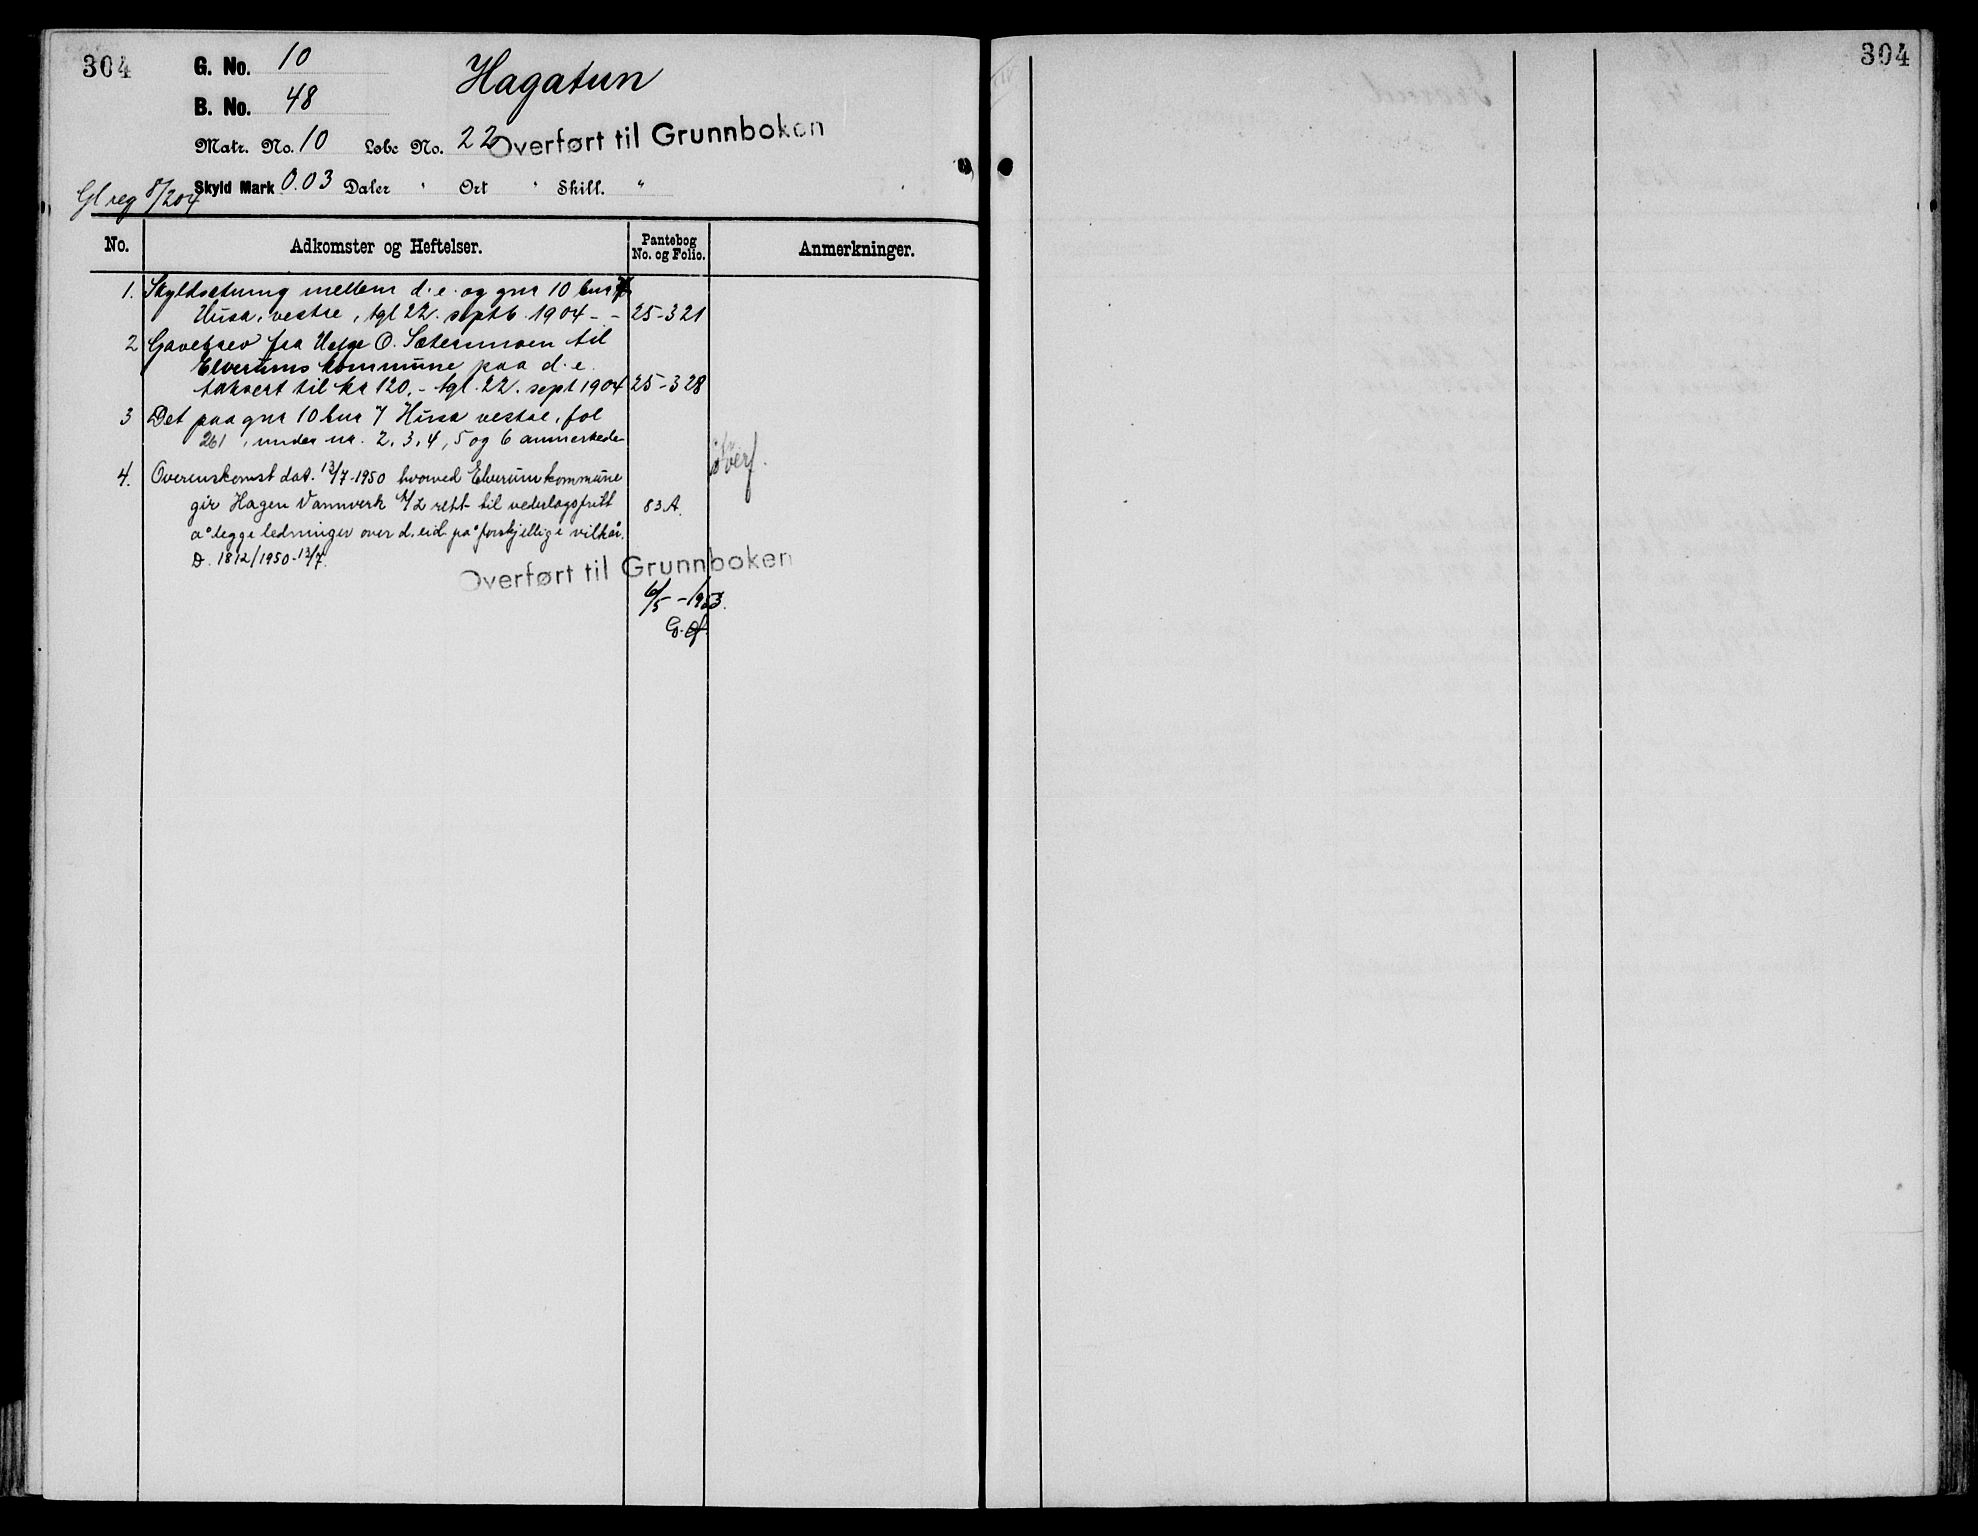 304
G. No. 10
B. No. 48
Hagatun
Matr. No. 10 Løbe No. 22
Overført til Grunnboken
Skyld Mark 0.03 Daler " Ort " Skill. "
Gl reg 8/204
No. Adkomster og Heftelser. Pantebog No. og Folio. Anmerkninger.
1. Skyldsetning mellem d. e. og gnr 10 bnr 7
Husa, vestre, tgl 22. septb. 1904 - - 25-321
2 Gavebrev fra Helge O. Sætermoen til
Elverums kommune paa d. e.
taksert til kr 120.- tgl. 22. sept 1904 25-328
3 Det paa gnr 10 bnr 7 Husa vestre, fol
261, under nr. 2, 3, 4, 5 og 6 anmerkede
Overf.
4. Overenskomst dat. 13/7-1950 hvorved Elverum kommune
gir Hagen Vannverk A/L rett til vederlagsfritt 83 A.
a° legge ledninger over d. eid. på forskjellige vilkår.
D. 1812/1950-13/7.
Overført til Grunnboken
6/5-1953.
304